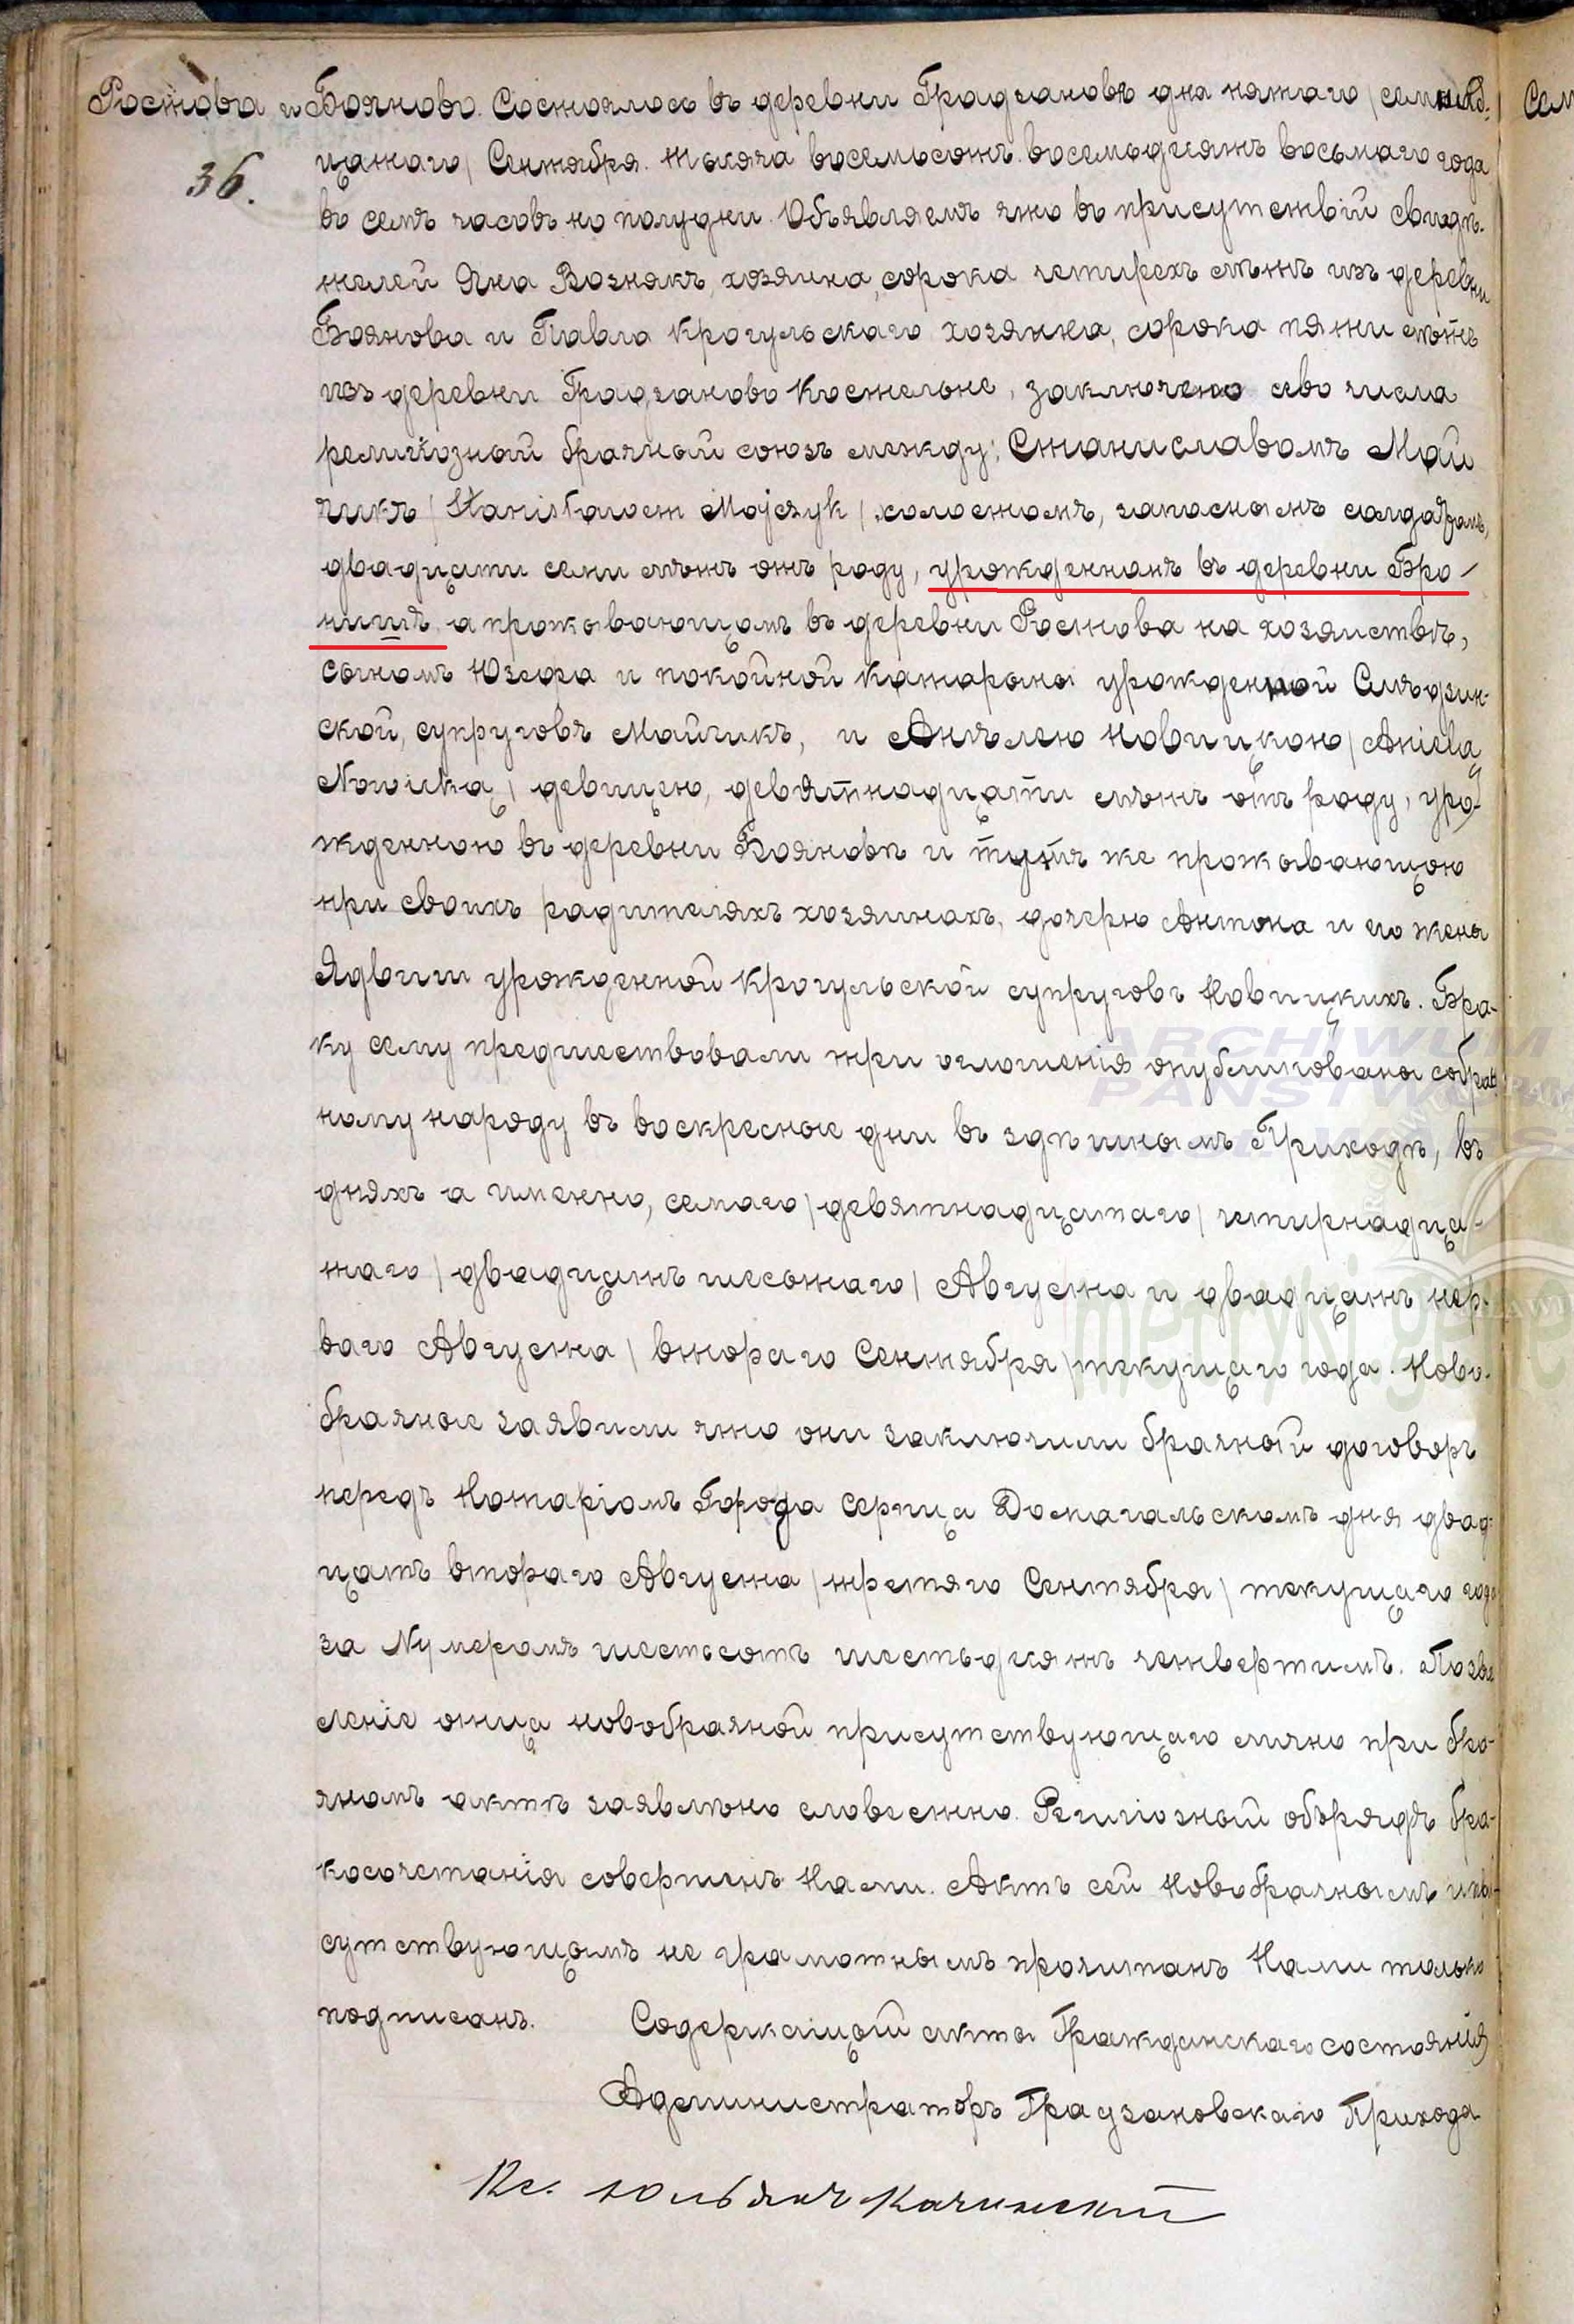 Ростова и Бояново. Состоялось въ деревни Градзановѣ дна пятаго / семнад-
36.
цатаго / Сентября тысяча восемьсотъ восемьдесятъ восьмаго года
въ семъ часовъ по полудни. Объявляемъ что въ присутствій свидѣ-
телей Яна Вознякъ, хозяина, сорока четирехъ лѣтъ изъ деревни
Боянова и Павла Крогульскаго хозяина, сорока пяти лѣтъ
изъ деревни Градзаново Костельне, заключено сего числа
религіозный брачный союзъ между: Станиславомъ Май
чикъ / Stanisławem Majczyk / холостомъ, запаснымъ солдатомъ,
двадцати семи лѣтъ отъ роду, урожденнымъ въ деревни Бро-
нишѣ а проживающимъ въ деревни Ростова на хозяиствѣ,
сыномъ Юзефа и покойной Катарыны урожденной Смѣдзин-
ской, супруговъ Майчикъ, и Анѣлею Новицкою / Aniela
Nowicka / девицею, девятнадцати лѣтъ отъ роду, уро-
жденною въ деревни Бояновѣ и тутъ же проживающою
при своихъ родителяхъ хозяинахъ, дочерю Антона и его жены
Ядвиги урожденной Крогульской супруговъ Новицкихъ. Бра-
ку сему предшествовали три оглошенія опубликованы собран
ному народу въ воскресные дни въ здѣшнымъ Приходѣ, въ
дняхъ а именно, семаго / девятнадцатаго / четирнадца-
таго / двадцать шестаго / Августа и двадцать пер-
ваго Августа / втораго Сентября / текущаго года. Ново-
брачные заявили что они заключили брачный договоръ
передъ Нотаріомъ Города Серпца Домагальскомъ дня двад-
цать втораго Августа / третяго Сентября / текущаго года
за Нумеромъ шестьсотъ шестьдесятъ четвертимъ. Позво
леніе отца новобрачной присутствующаго лично при бра-
чномъ актѣ заявлѣно словесно. Религіозный обърядъ бра-
косочетанія совершенъ Нами. Актъ сей Новобрачнымъ и при-
сутствующимъ не грамотнымъ прочитанъ Нами только
подписанъ. Содержащій акты Гражданскаго состоянія
Администраторъ Градзановскаго Прихода
Кс. Юльянъ Качинскій
ARCHIWUM
PAŃSTWOWE
metryki.gene